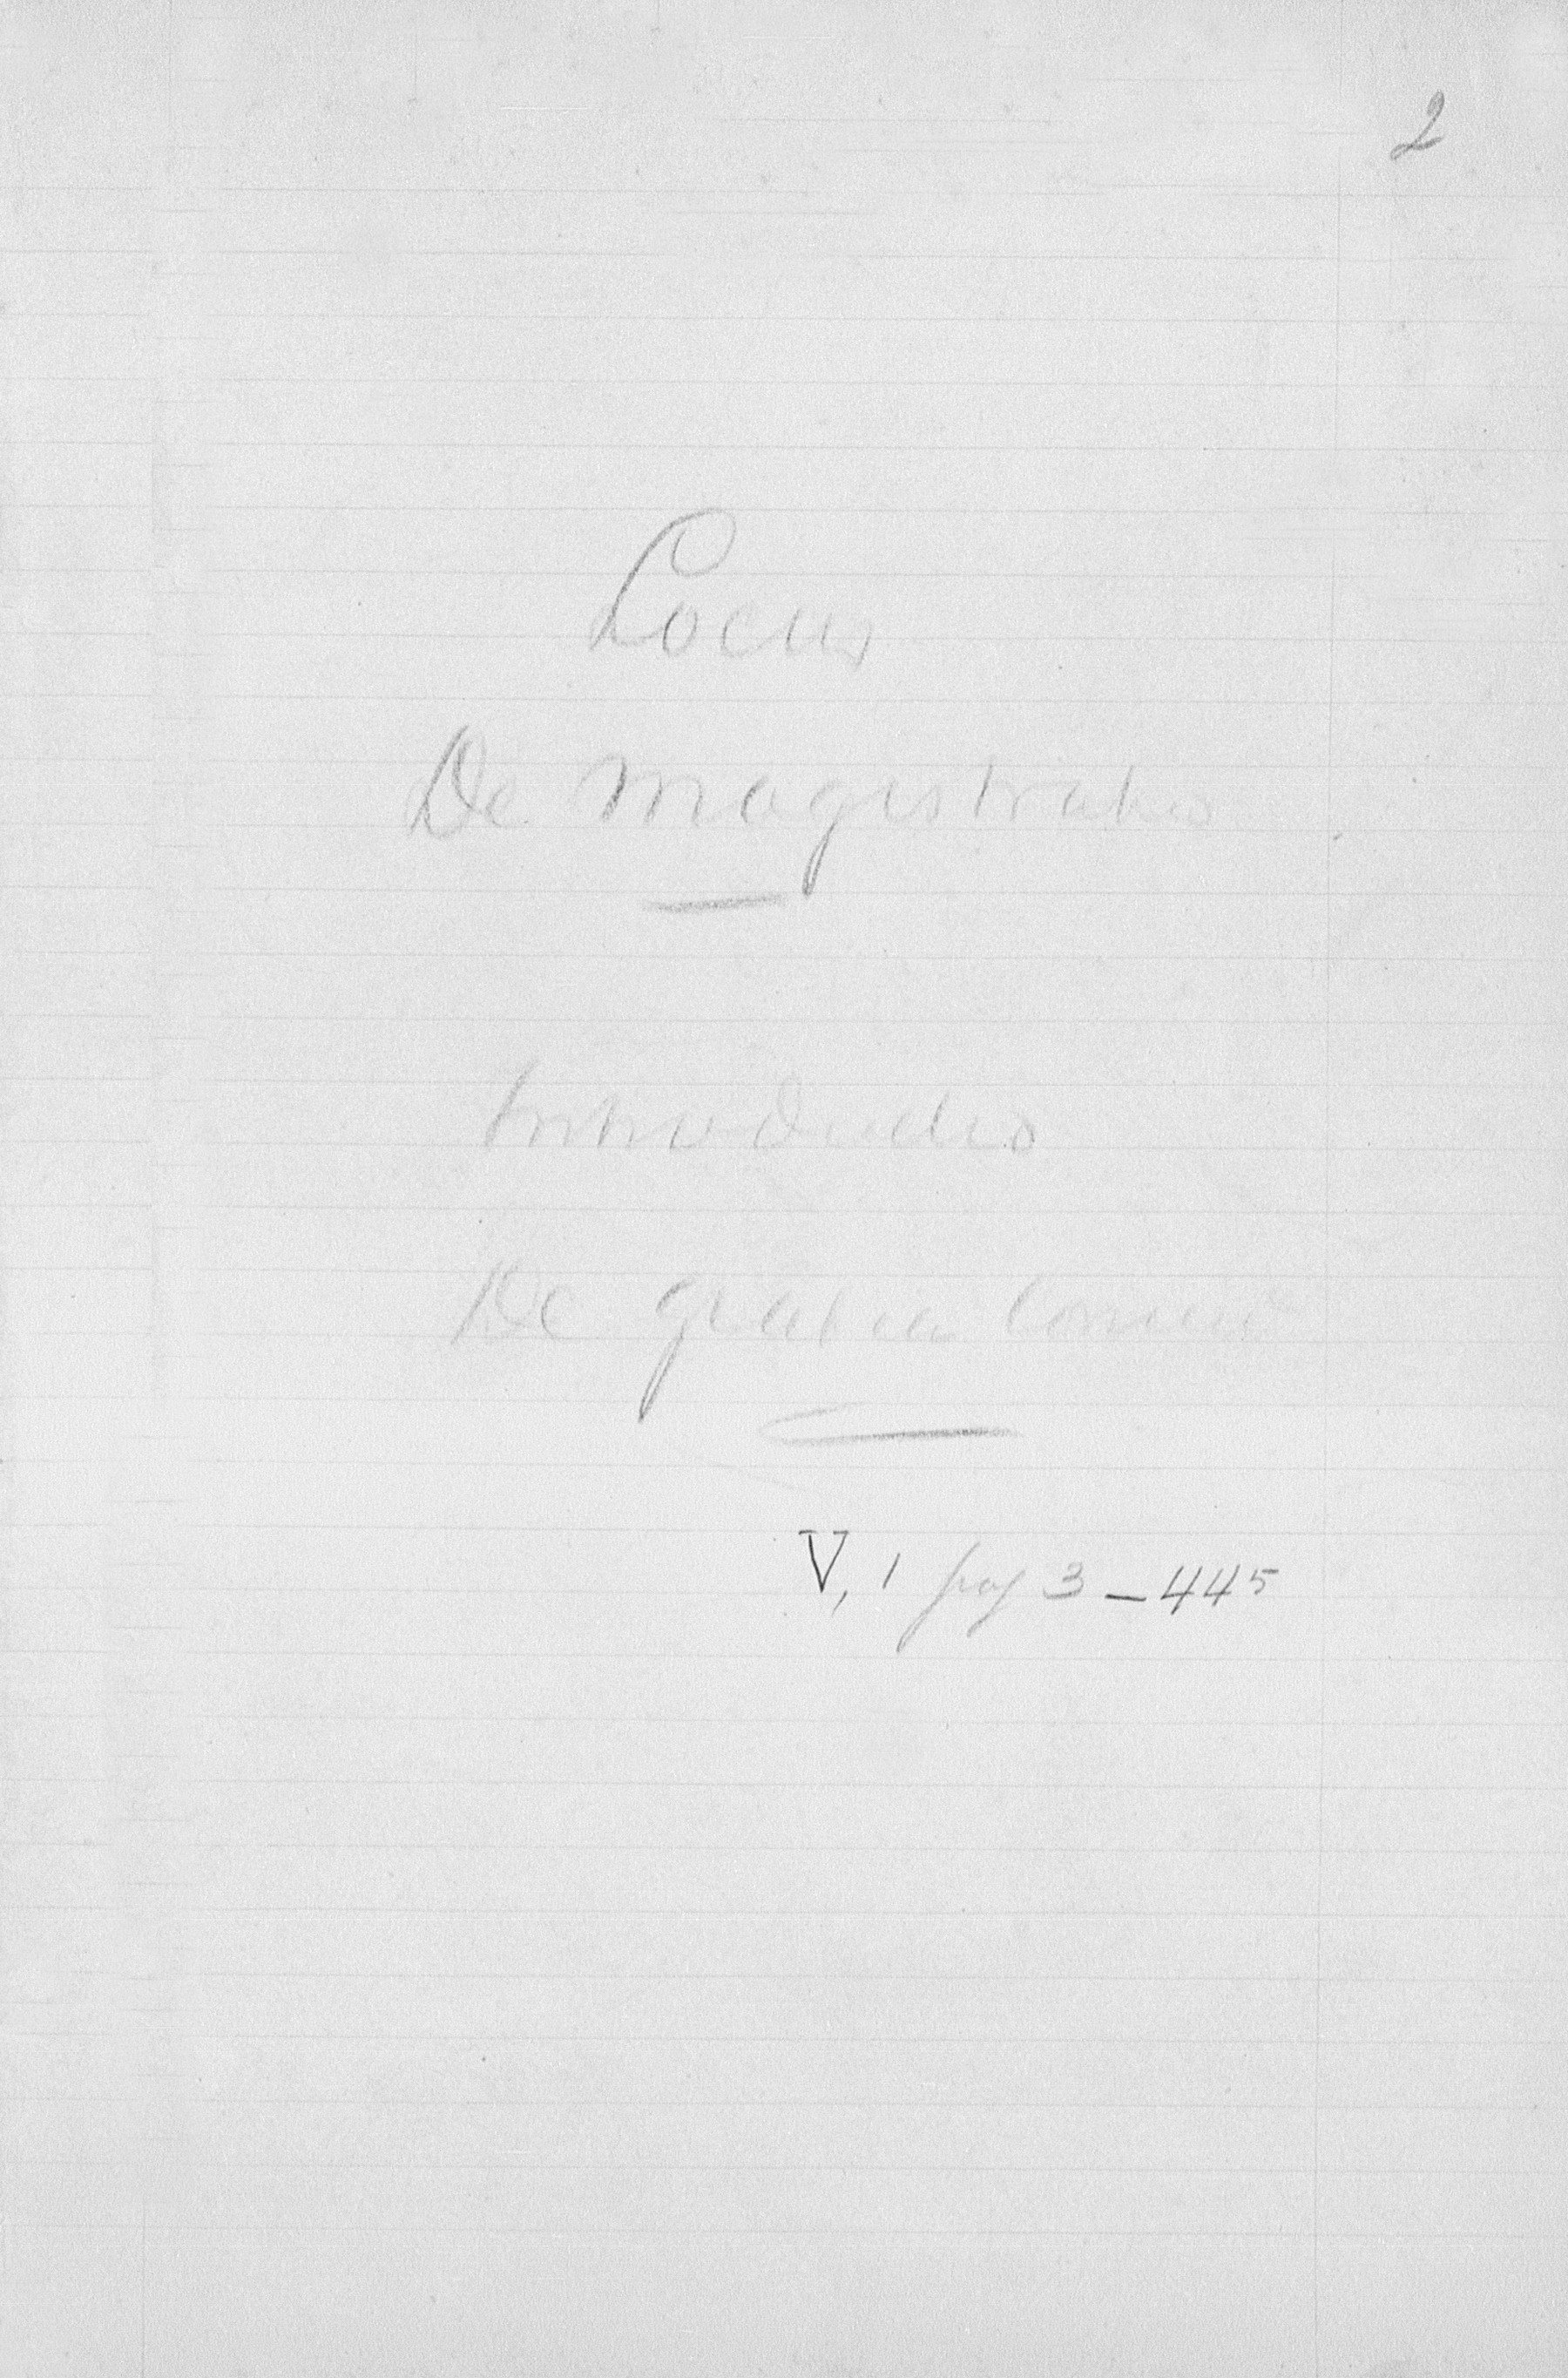 2
Locus
De Magistratu
Introductio
De gratia communi
V, 1 pag 3 – 445